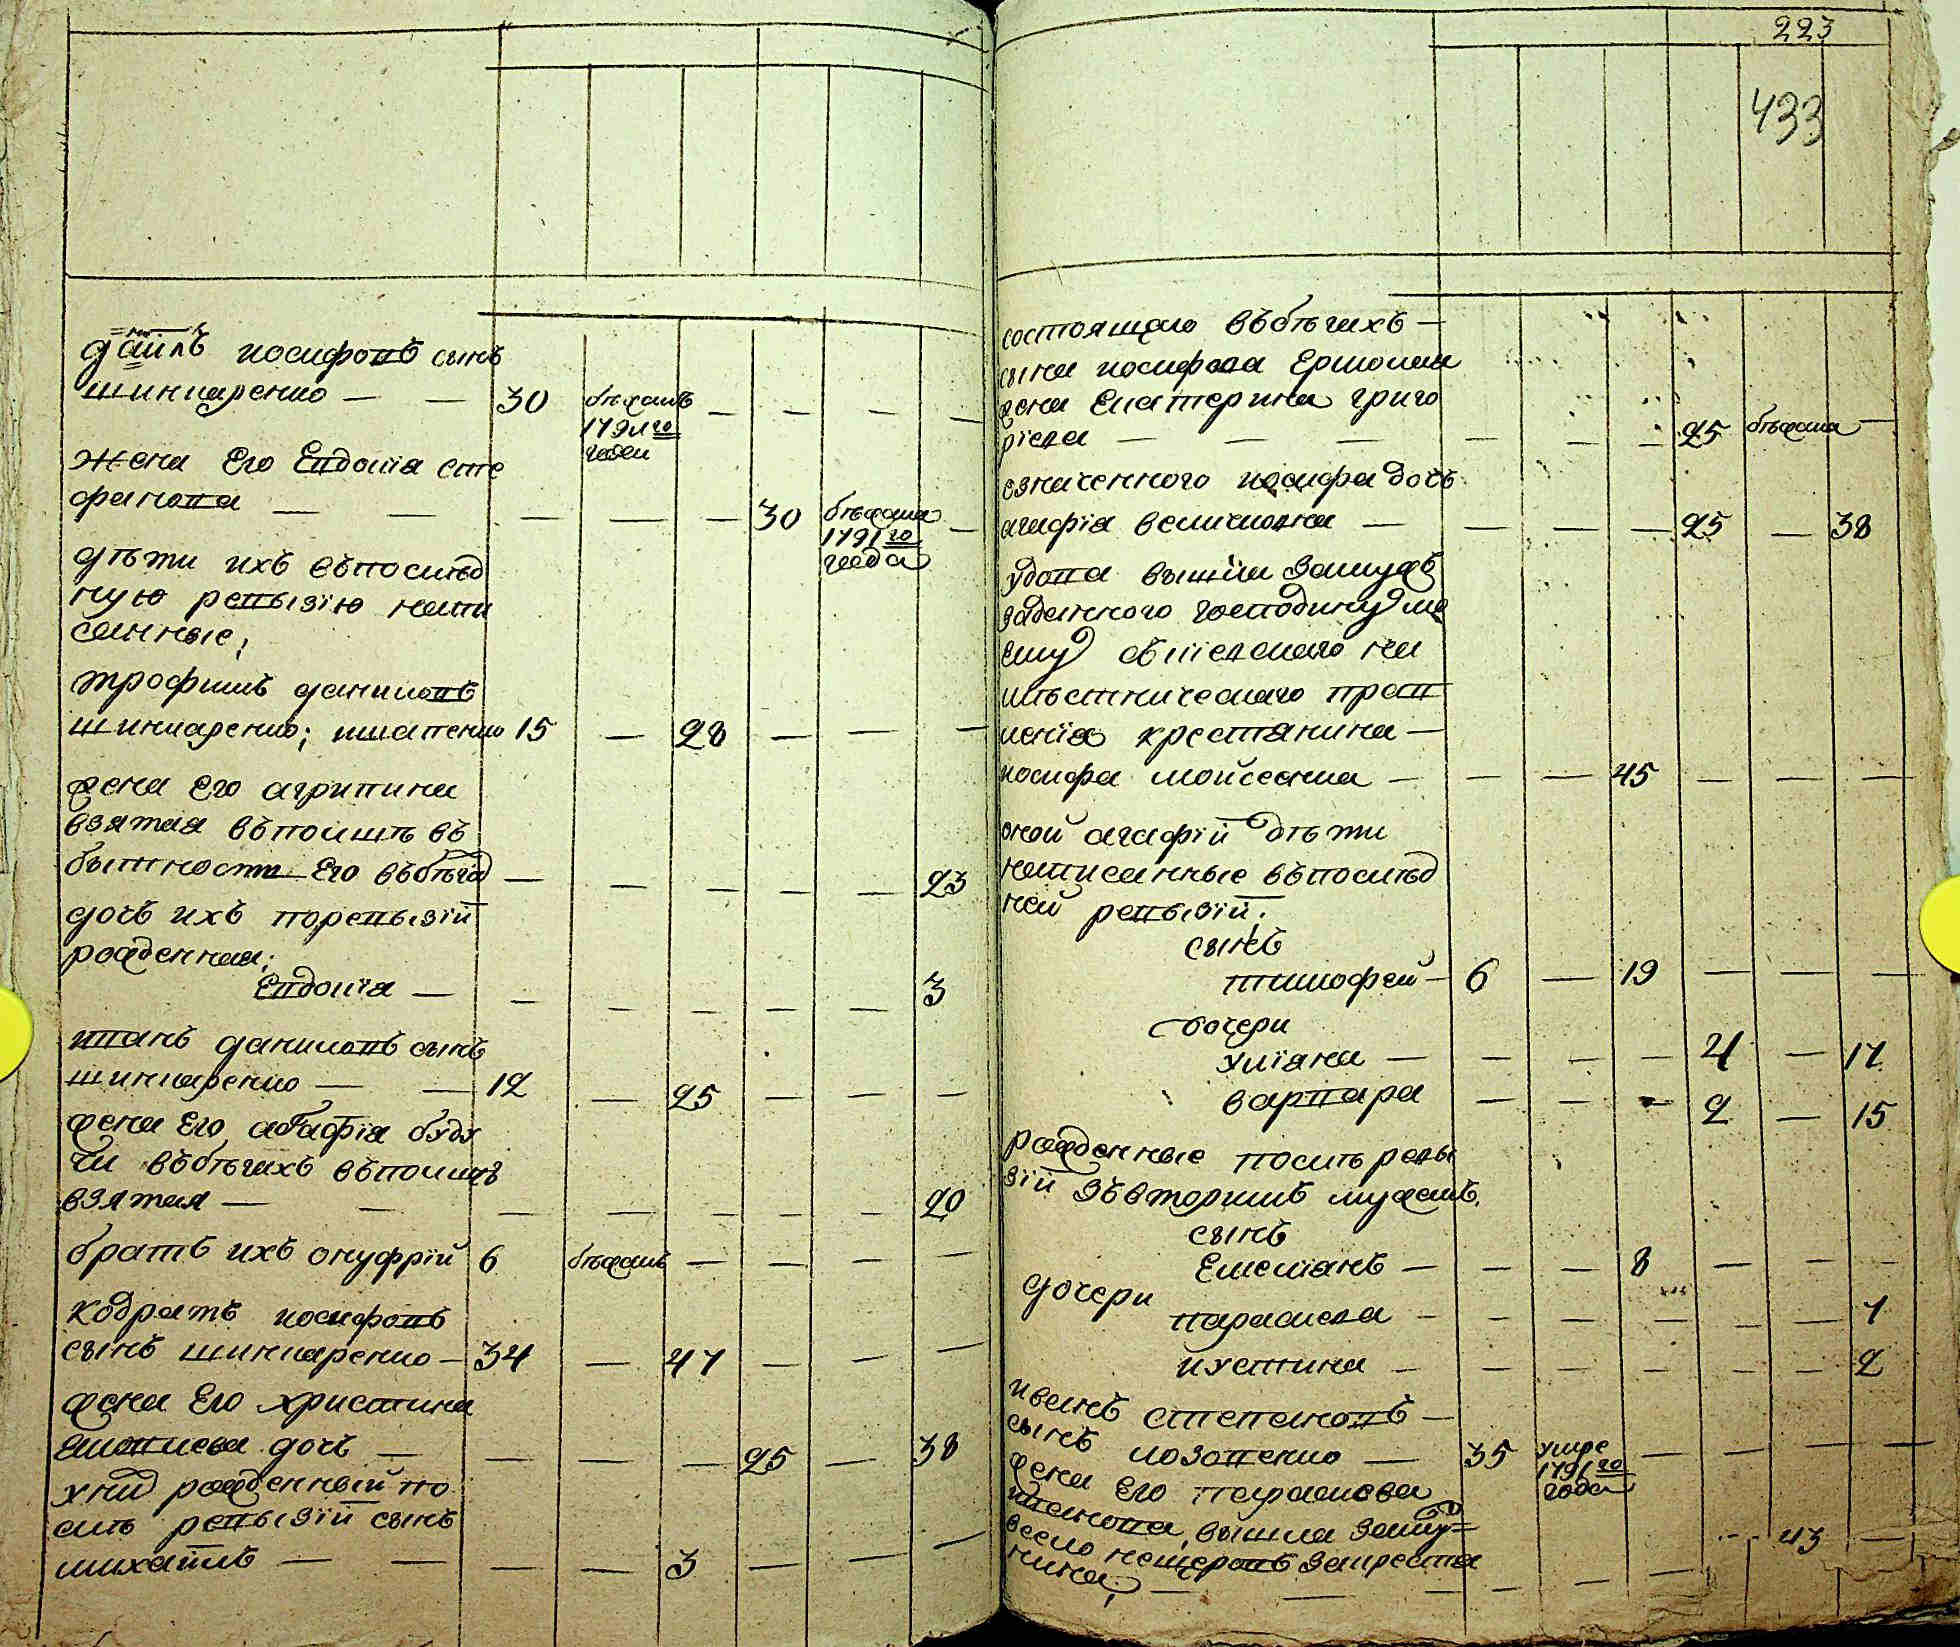 данилъ иосифовъ сынъ
шинкаренко — — 30 бежалъ — — — —
1791 го
года
жена Его Евдокія сте
фанова — — — — — 30 бѣжала —
1791 го
года
дѣти ихъ въпослѣд
ную ревызію напи
санные;
трофимъ даниловъ
шинкаренко; 15 — 28 — — —
жена Его агрипина
взятая въполшѣ въ
бытность Его вбѣгах — — — — — 23
дочь ихъ поревызій
рожденная;
Евдокія — — — — — — 3
иванъ даниловъ сынъ
шинкаренко — — 12 — 25 — — —
жена Его агафія буду
чи въбѣгахъ въполшѣ
взятая — — — — — — — 20
братъ ихъ онуфрій 6 бѣжалъ — — — —
кодратъ иосифовъ
сынъ шинкаренко — 34 — 47 — — —
жена Его христина
дочь — — — — — 25 — 38
рожденный по
слѣ ревызій сынъ
михайлъ — — — — 3 — — —
223
433
состоящаго въбѣгахъ —
сына иосифова Ермолая
жена Екатерина григо
ріева — — — — — — 25 бѣжала —
означенного иосифа дочь
агафія — — — — — 25 — 38
удова вышла замужъ
господину
ему кіевскаго на
мѣстническаго прав
ленія крестянина —
иосифа мойсеенка — — — 45 — — —
оной агафій дѣти
написанные въпослѣд
ней ревызій.
сынъ
тимофей — 6 — 19 — — —
дочери
уліяна — — — — 4 — 17
варвара — — — — 2 — 15
рожденные послѣ ревы
зій зъвторимъ мужемъ.
сынъ
Емеліянъ — — — 8 — — —
дочери
параскева — — — — — — 7
иустина — — — — — — 2
иванъ степановъ —
сынъ лозовенко — 35 умре — — — —
1791 го
года
жена Его параскева
иванова, вышла заму=
село нещеровъ закрестя — 43 —
нина; — — — — — —